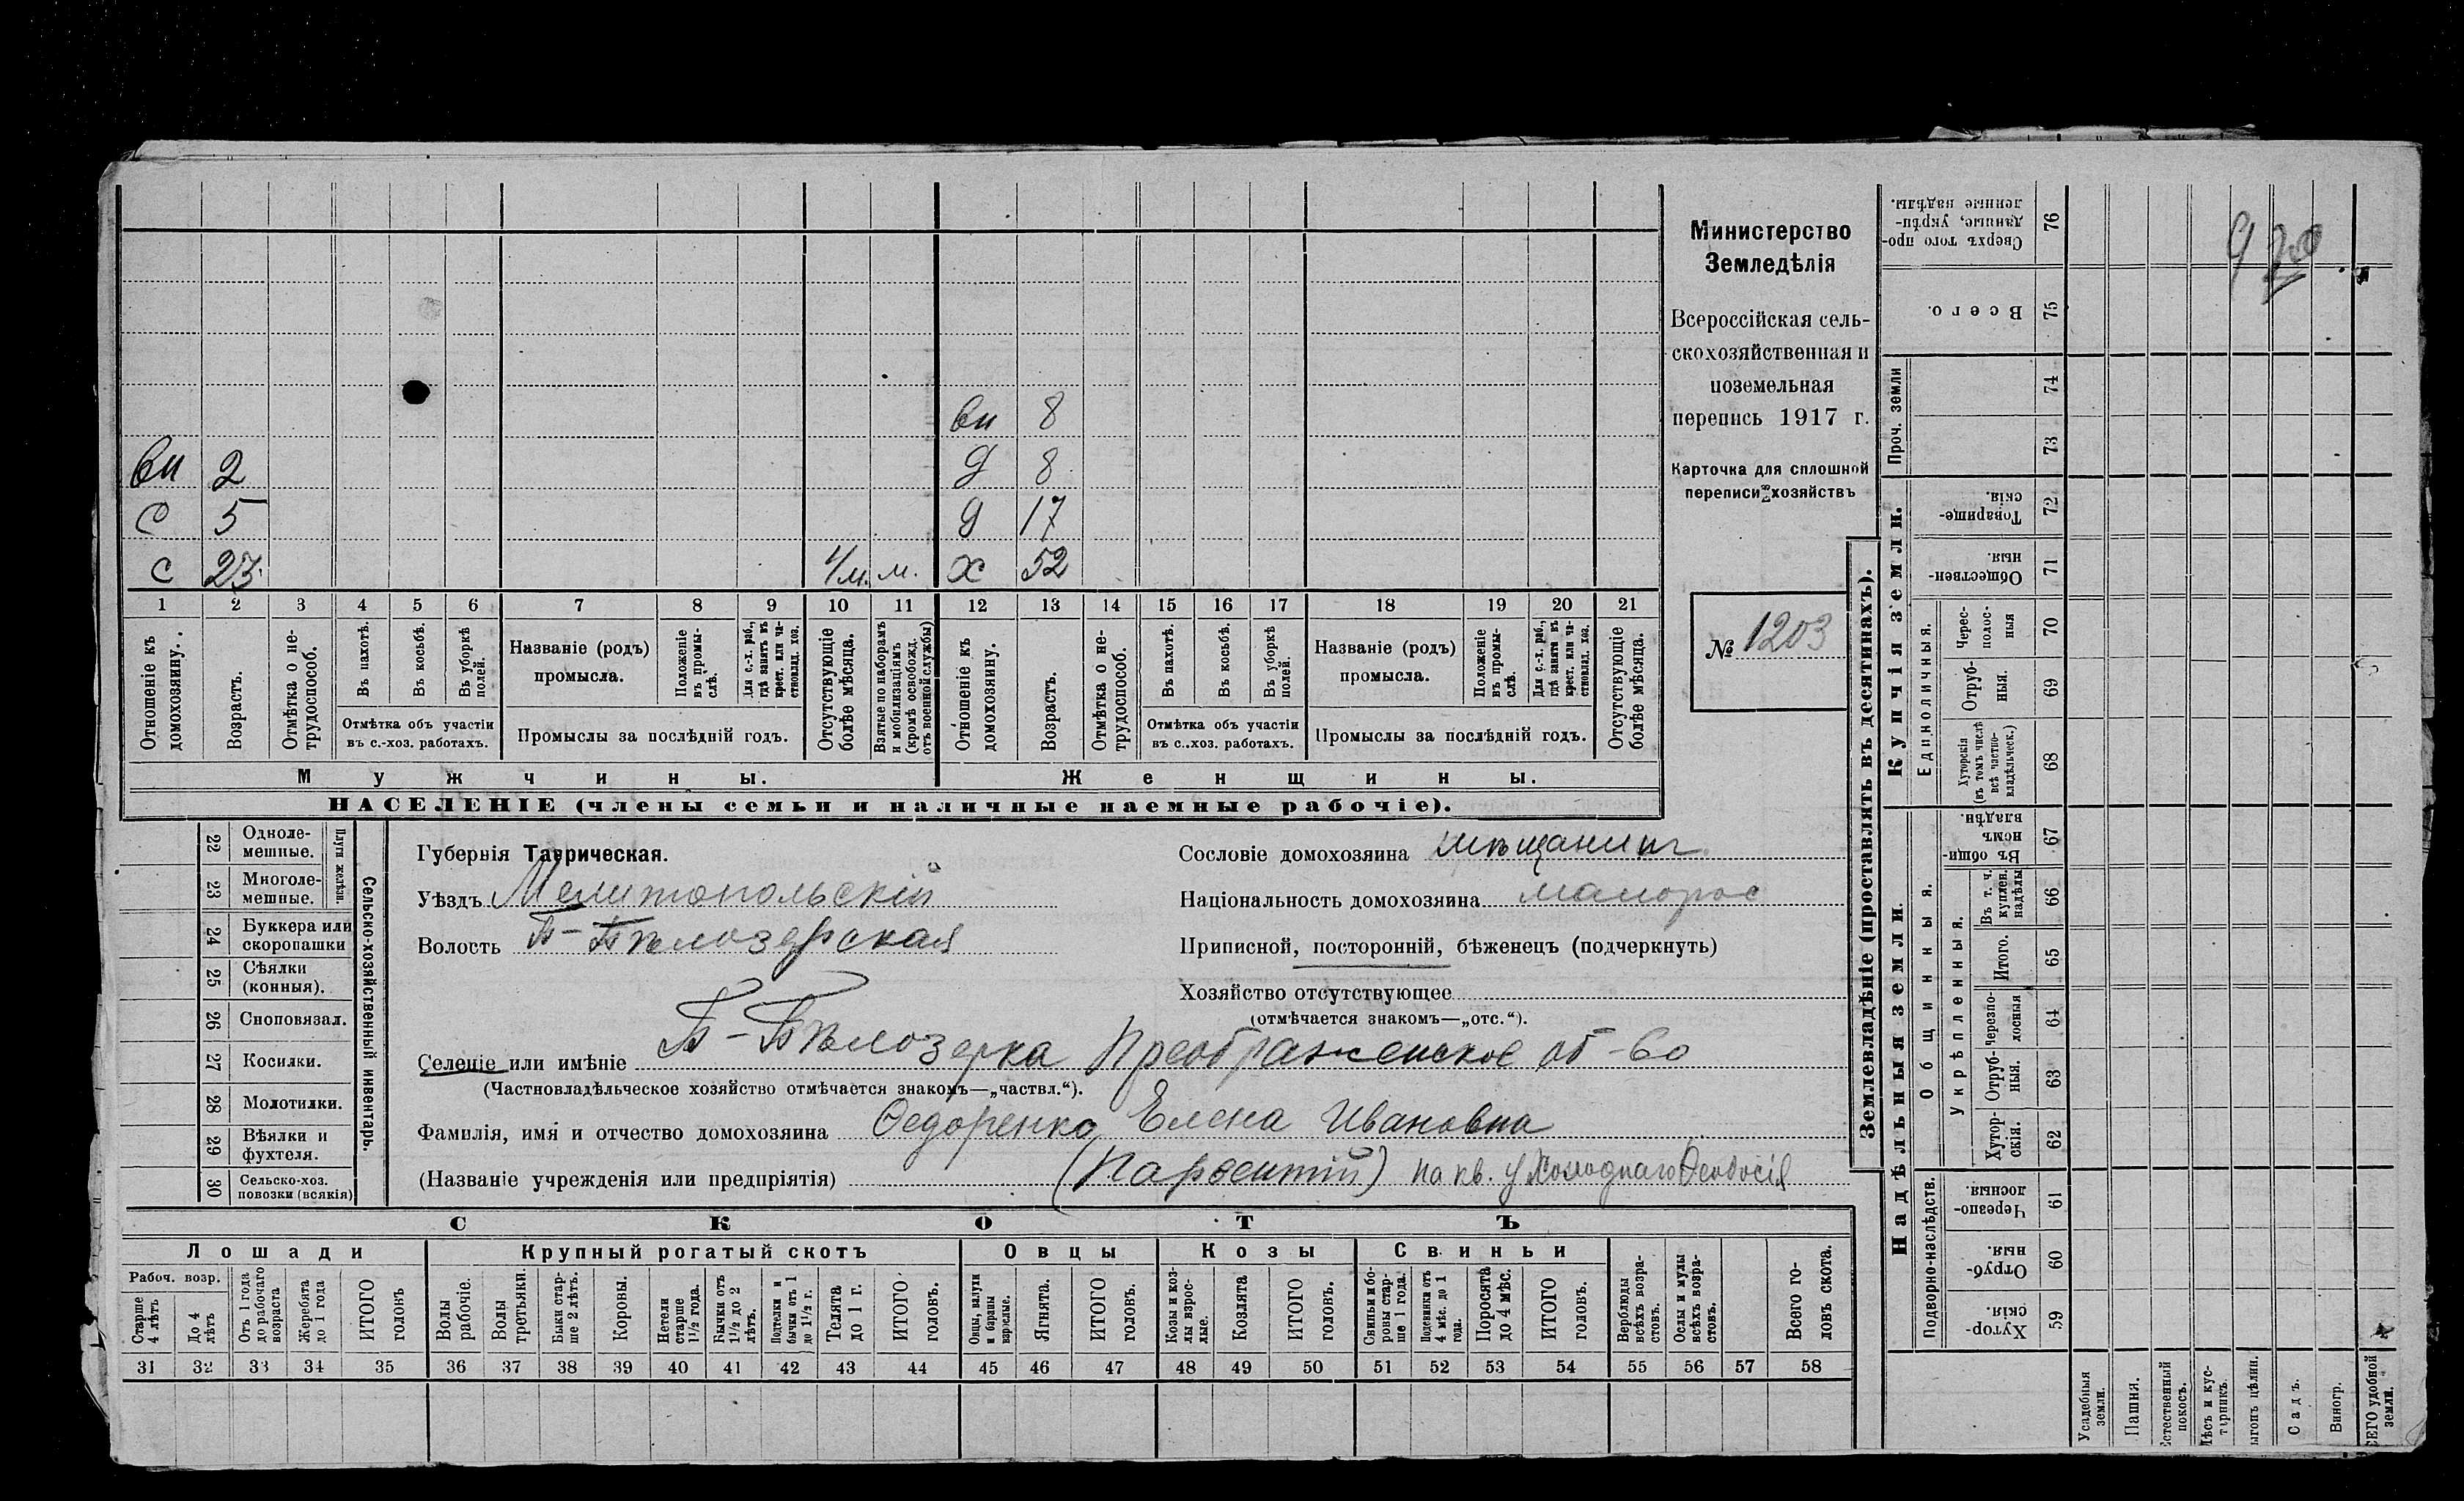 вн 8
вн 2 д 8
с 5 д 17
с 23 1/м. м. х 52
1 2 3 4 5 6 7 8 9 10 11 12 13 14 15 16 17 18 19 20 21
Отношеніе къ домохозяину.
Возрастъ.
Отмѣтка о не-трудоспособ.
Въ пахотѣ.
Въ косьбѣ.
Въ уборкѣ полей.
Отмѣтка объ участіи въ с.-хоз. работахъ.
Названіе (родъ) промысла.
Положеніе въ промы-слѣ.
Для с.-х. раб., гдѣ занятъ въ крест. или ча-стновлад. хоз.
Промыслы за послѣдній годъ.
Отсутствующіе болѣе мѣсяца.
Взятые по наборамъ и мобилизаціямъ (кромѣ освобожд. отъ военной службы)
Отношеніе къ домохозяину.
Возрастъ.
Отмѣтка о не-трудоспособ.
Въ пахотѣ.
Въ косьбѣ.
Въ уборкѣ полей.
Отмѣтка объ участіи въ с..хоз. работахъ.
Названіе (родъ) промысла.
Положеніе въ промы-слѣ.
Для с.-х. раб., гдѣ заняты въ крест. или ча-стновлад. хоз.
Промыслы за послѣдній годъ.
Отсутствующіе болѣе мѣсяца.
Мужчины. Женщины.
НАСЕЛЕНІЕ (члены семьи и наличные наемные рабочіе).
Министерство
Земледѣлія
Всероссійская сель-
скохозяйственная и
поземельная
перепись 1917 г.
Карточка для сплошной
переписи хозяйствъ
№ 1203
22 Одноле-мешные.
23 Многоле-мешные.
Плуги желѣзн.
24 Буккера или скоропашки
25 Сѣялки (конныя).
26 Сноповязал.
27 Косилки.
28 Молотилки.
29 Вѣялки и фухтеля.
30 Сельско-хоз. повозки (всякія)
Сельско-хозяйственный инвентарь.
Губернія Таврическая.
Уѣздъ Мелитопольскій
Волость Б-Бѣлозерская
Селеніе или имѣніе Б-Бѣлозерка Преображенское об-во
(Частновладѣльческое хозяйство отмѣчается знакомъ—„частвл.“).
Фамилія, имя и отчество домохозяина Ѳедоренко Елена Ивановна
(Названіе учрежденія или предпріятія) (Парѳентій) на кв. у Холоднаго Ѳеодосія
Сословіе домохозяина мѣщанинъ
Національность домохозяина малорос
Приписной, посторонній, бѣженецъ (подчеркнуть)
Хозяйство отсутствующее
(отмѣчается знакомъ—„отс.“).
СКОТЪ
Лошади Крупный рогатый скотъ Овцы Козы Свиньи
Рабоч. возр.
Старше 4 лѣтъ
До 4 лѣтъ
Отъ 1 года до рабочаго возраста
Жеребята до 1 года
ИТОГО головъ
Волы рабочіе.
Волы третьяки.
Быки стар-ше 2 лѣтъ.
Коровы.
Нетели старше 1½ года.
Бычки отъ 1½ до 2 лѣтъ.
Подтелки и бычки отъ 1 до 1½ г.
Телята до 1 г.
ИТОГО головъ.
Овцы, валухи и бараны взрослые.
Ягнята.
ИТОГО головъ.
Козы и коз-лы взрос-лые.
Козлята
ИТОГО головъ.
Свиньи и бо-ровы стар-ше 1 года.
Подсвинки отъ 4 мѣс. до 1 года.
Поросята до 4 мѣс.
ИТОГО головъ.
Верблюды всѣхъ возра-стовъ.
Ослы и мулы всѣхъ возра-стовъ.
Всего го-ловъ скота.
31 32 33 34 35 36 37 38 39 40 41 42 43 44 45 46 47 48 49 50 51 52 53 54 55 56 57 58
Землевладѣніе (проставлять въ десятинахъ).
Купчія земли.
Надѣльныя земли.
Сверхъ того про-данные, укрѣп-ленные надѣлы. 76
Всего. 75
Проч. земли 74 73
Товарище-скія. 72
Обществен-ныя. 71
Единоличныя.
Черес-полос-ныя 70
Отруб-ныя. 69
Хуторскія (въ томъ числѣ всѣ частно-владѣльческ.) 68
Общинныя.
Въ общин-номъ владѣн. 67
Укрѣпленныя.
Въ т. ч. куплен. надѣлы 66
Итого. 65
Черезпо-лосныя 64
Отруб-ныя. 63
Хутор-скія. 62
Подворно-наслѣдств.
Черезпо-лосныя. 61
Отруб-ныя. 60
Хутор-скія. 59
Усадебныя земли.
Пашня.
Естественный покосъ.
Лѣсъ и кус-тарникъ.
Садъ.
Виногр.